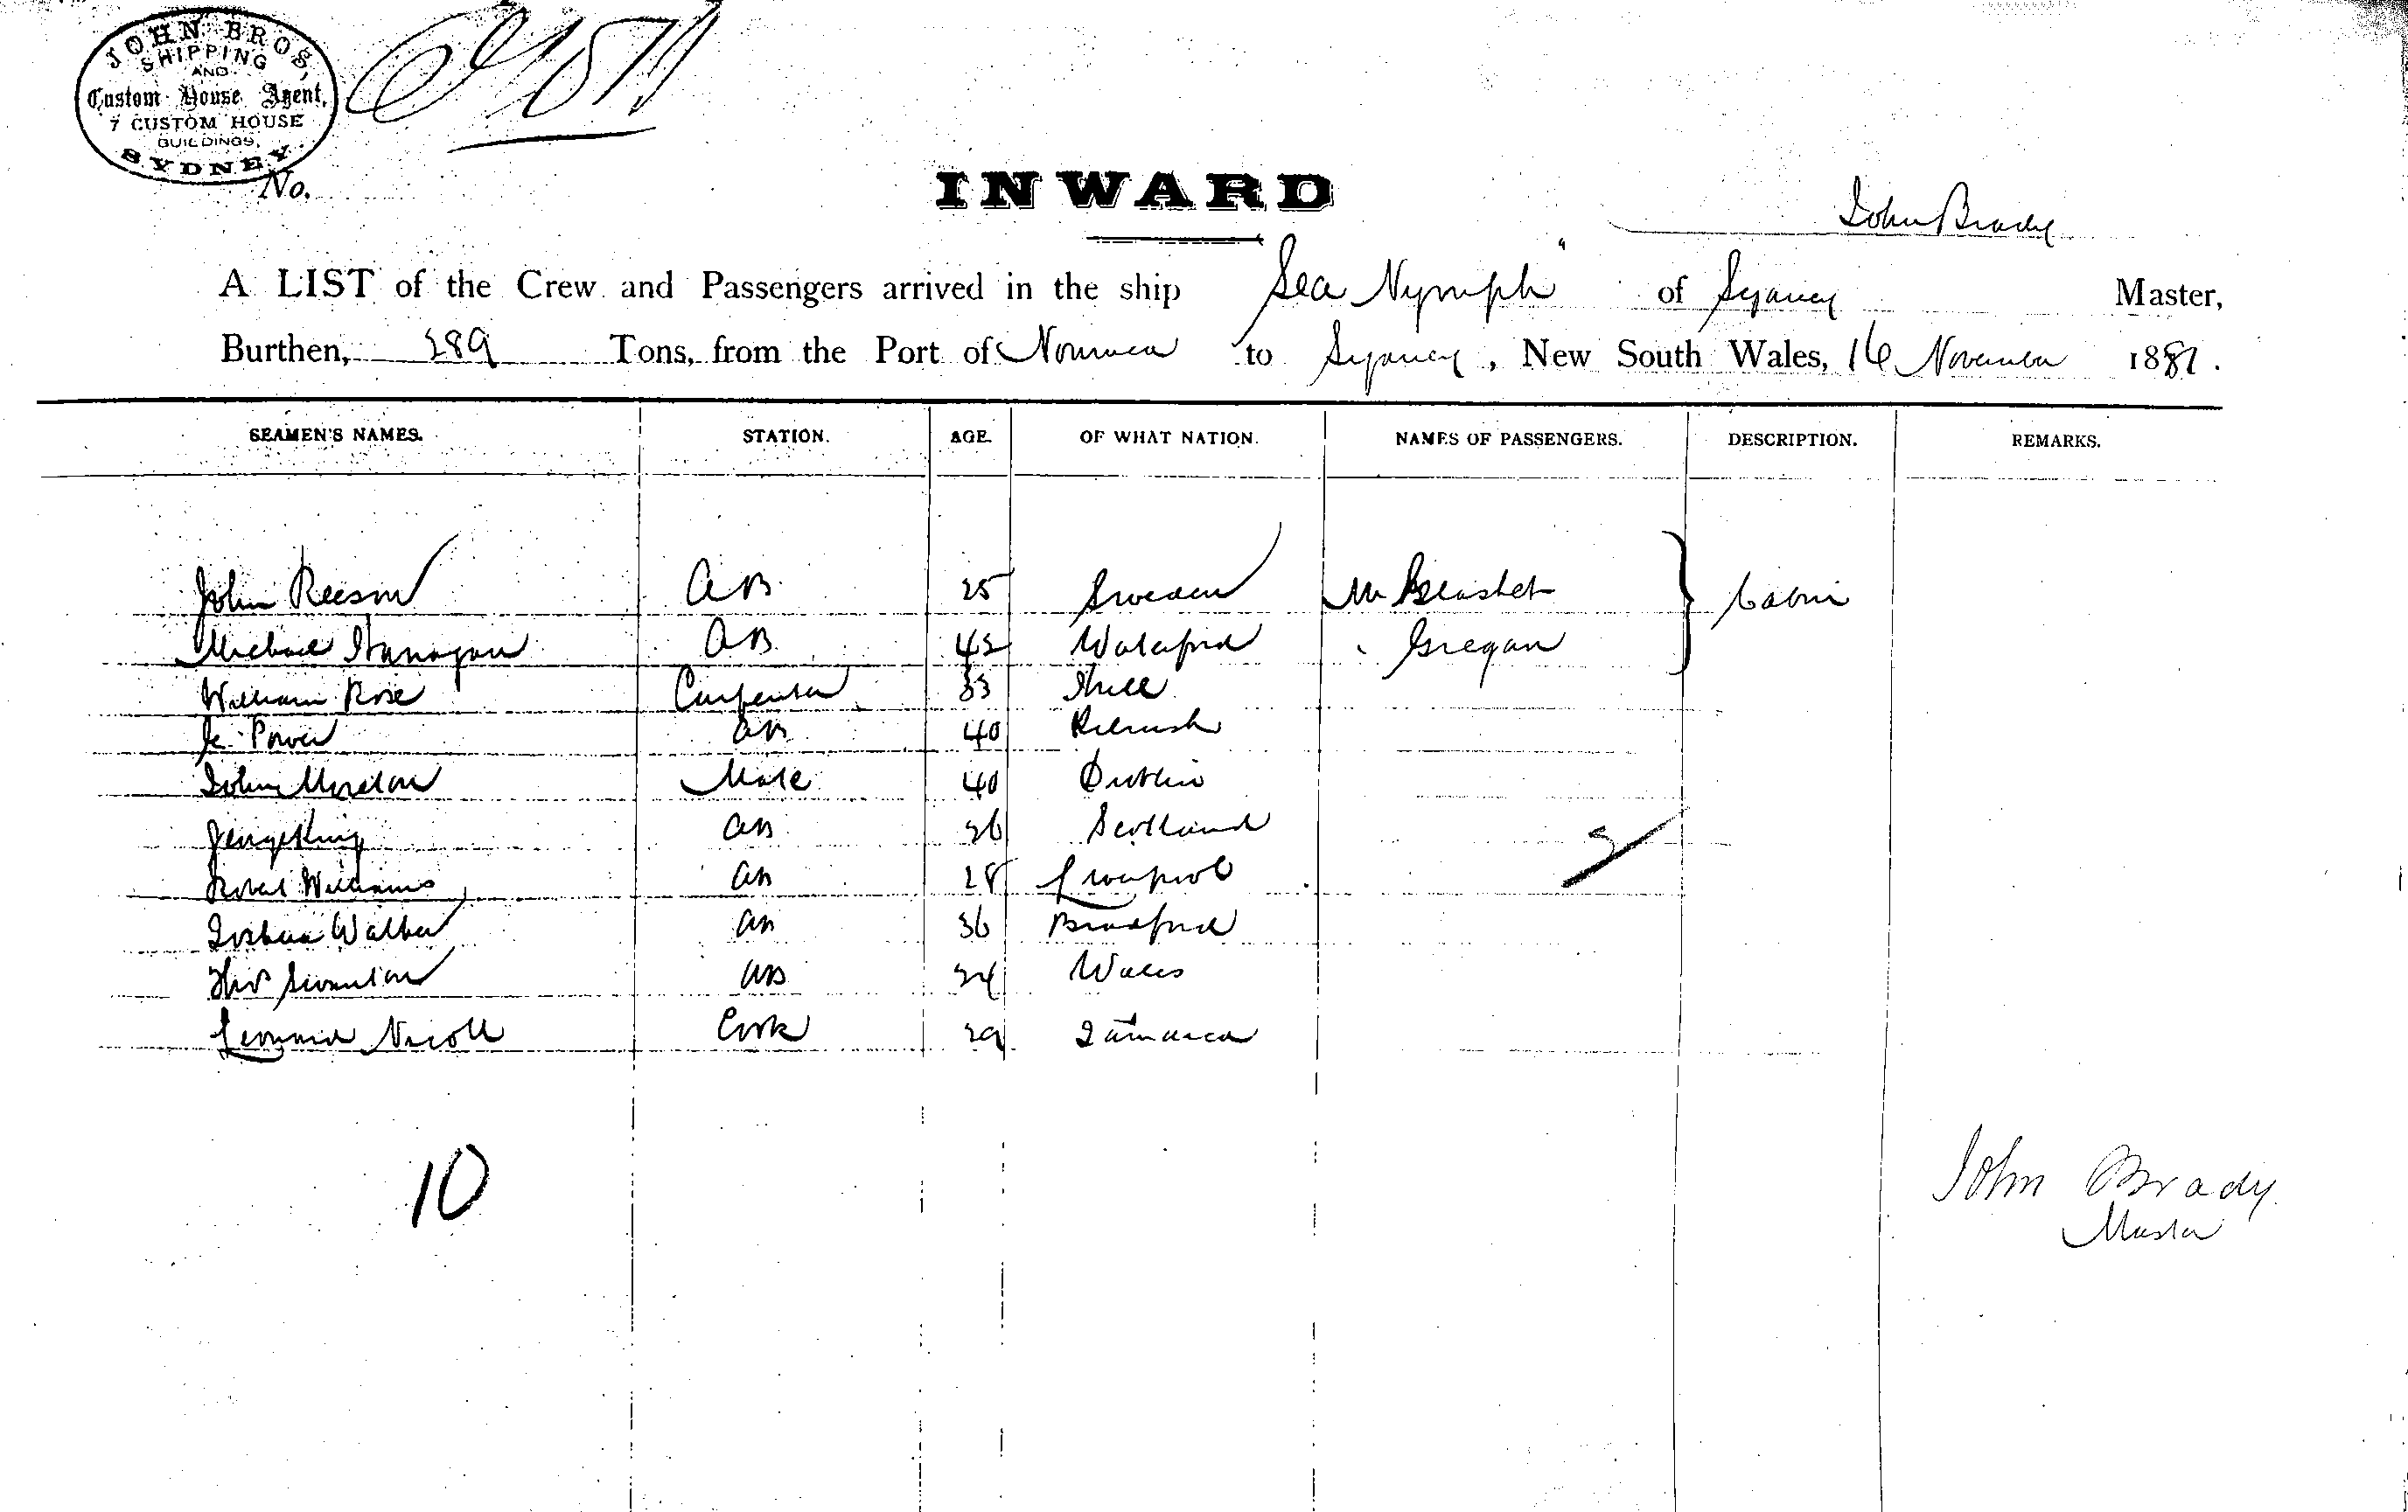 JOHN BROS,
SHIPPING
AND
Custom House Agent,
7 CUSTOM HOUSE
BUILDINGS,
SYDNEY
No.
INWARD
John Brady
A LIST of the Crew and Passengers arrived in the ship Sea Nymph" of Sydney Master,
Burthen, 289 Tons, from the Port of Noumea to Sydney, New South Wales, 16 November 1881.
SEAMEN'S NAMES. STATION. AGE. OF WHAT NATION. NAMES OF PASSENGERS. DESCRIPTION. REMARKS.
John Reeson AB 25 Sweden Mr Cabin
Michael Hanagan AB 42 Waterford Gregan
William Rose Carpenter 33 Hull
Power AB 40 Kilrush
John Mate 40 Dublin
George King AB 26 Scotland
Robert Williams AB 28 Liverpool 2
Joshua Walker AB 36 Bradford
Thos Swanton AB 24 Wales
Leonard Nicoll Cook 29 Jamaica
10
John Brady
Master